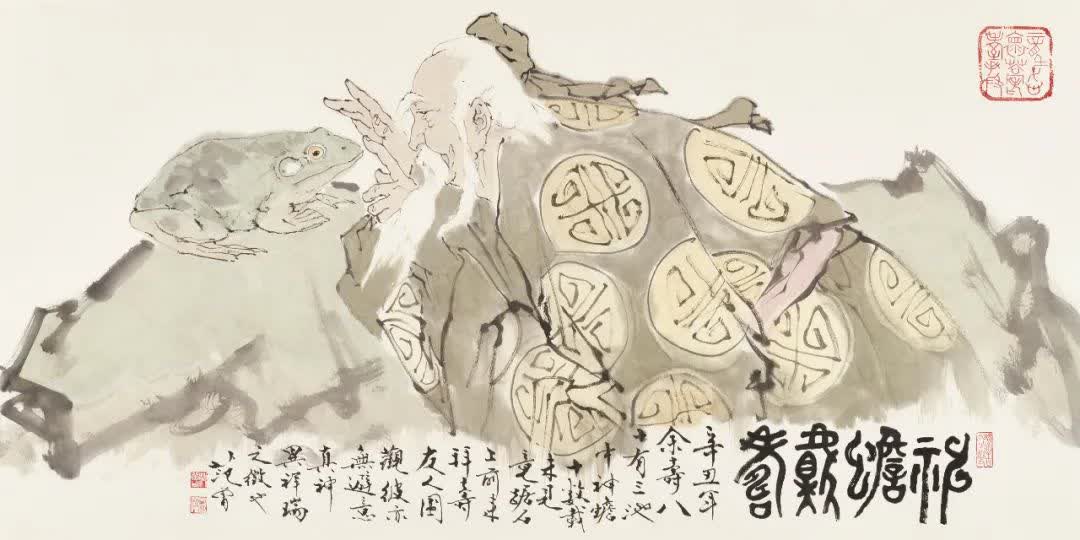 神蟾獻壽
辛丑年
余壽八
十有三池
中神蟾
十數載
未見
竟踞石
上前來
拜壽
友人圍
觀彼亦
無避意
真神
異祥瑞
之徵也
范曾